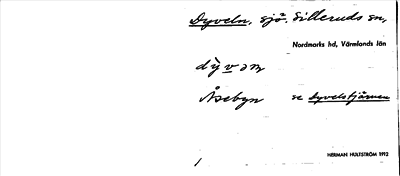 Dyveln, sjö. Silleruds sn,
Nordmarks hd, Värmlands län
dỳvan
Åsebyn se Dyvelstjärnen
HERMAN HULTSTRÖM 1912
1